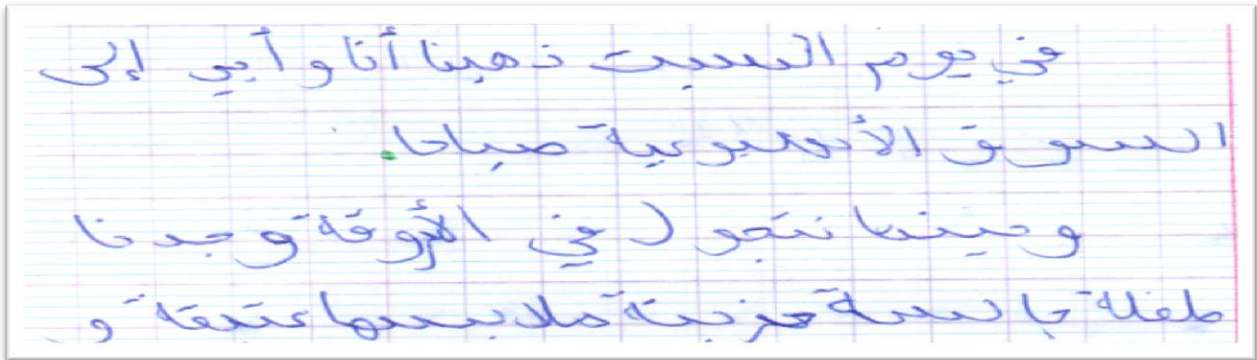 في يوم السبت ذهبنا أنا و أبي إلى
السوق الأسبوعية صباحا.
و حينما نتجول في الأروقة وجدنا
طفلة جالسة حزينة ملابسها عتيقة و